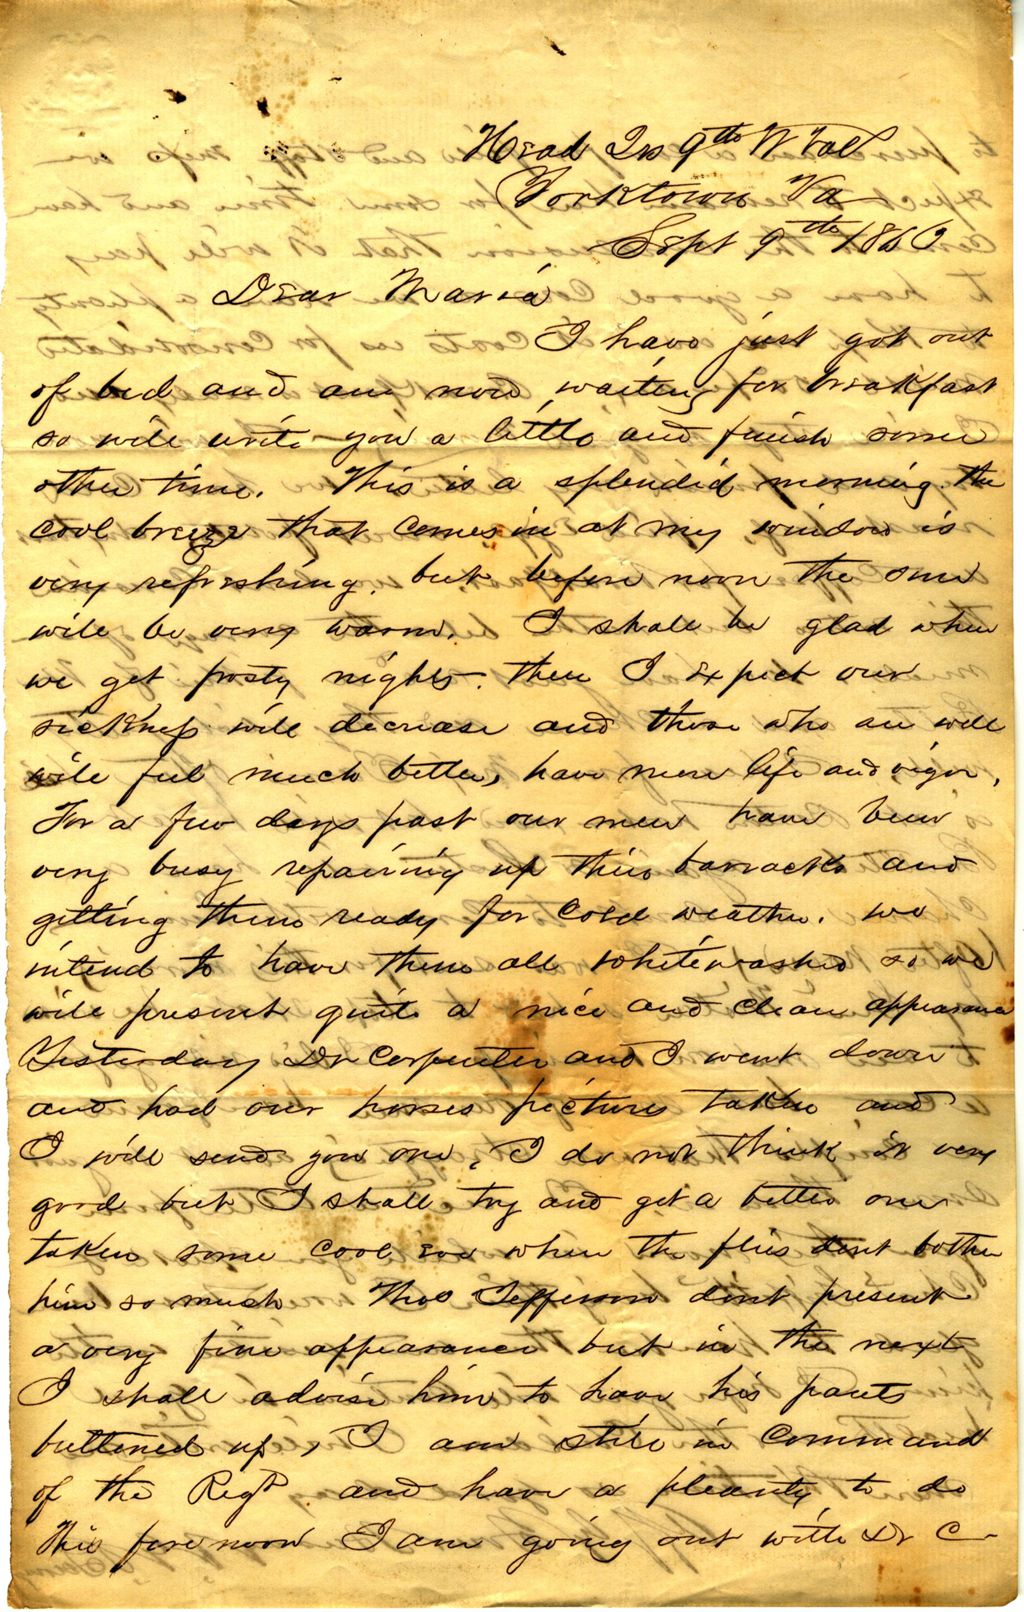 Head Qrs 9th N Y Vol
Yorktown Va
Sept 9th 1863
Dear Maria
I have just got out
of bed and am now waiting for breakfast
so will write you a little and finish some
other time. This is a splendid morning. the
cool breeze that comes in at my window is
very refreshing. but before noon the sun
will be very warm. I shall be glad when
we get frosty nights. then I expect our
sickness will decrease and those who are well
will feel much better, have more life and vigor.
For a few days past our men have been
very busy repairing up their barracks and
getting them ready for cold weather. we
intend to have them all whitewashed so we
will present quite a nice and clean appearance
Yesterday Dr Carpenter and I went down
and had our horses pictures taken and
I will send you one, I do not think it very
good but I shall try and get a better one
taken some cool eve when the flies dont bother
him so much Thos Jefferson dont present
a very fine appearance but in the next
I shall advise him to have his pants
buttened up, I am still in command
of the Regt. and have a pleanty to do
This fore noon I am going out with Dr C-